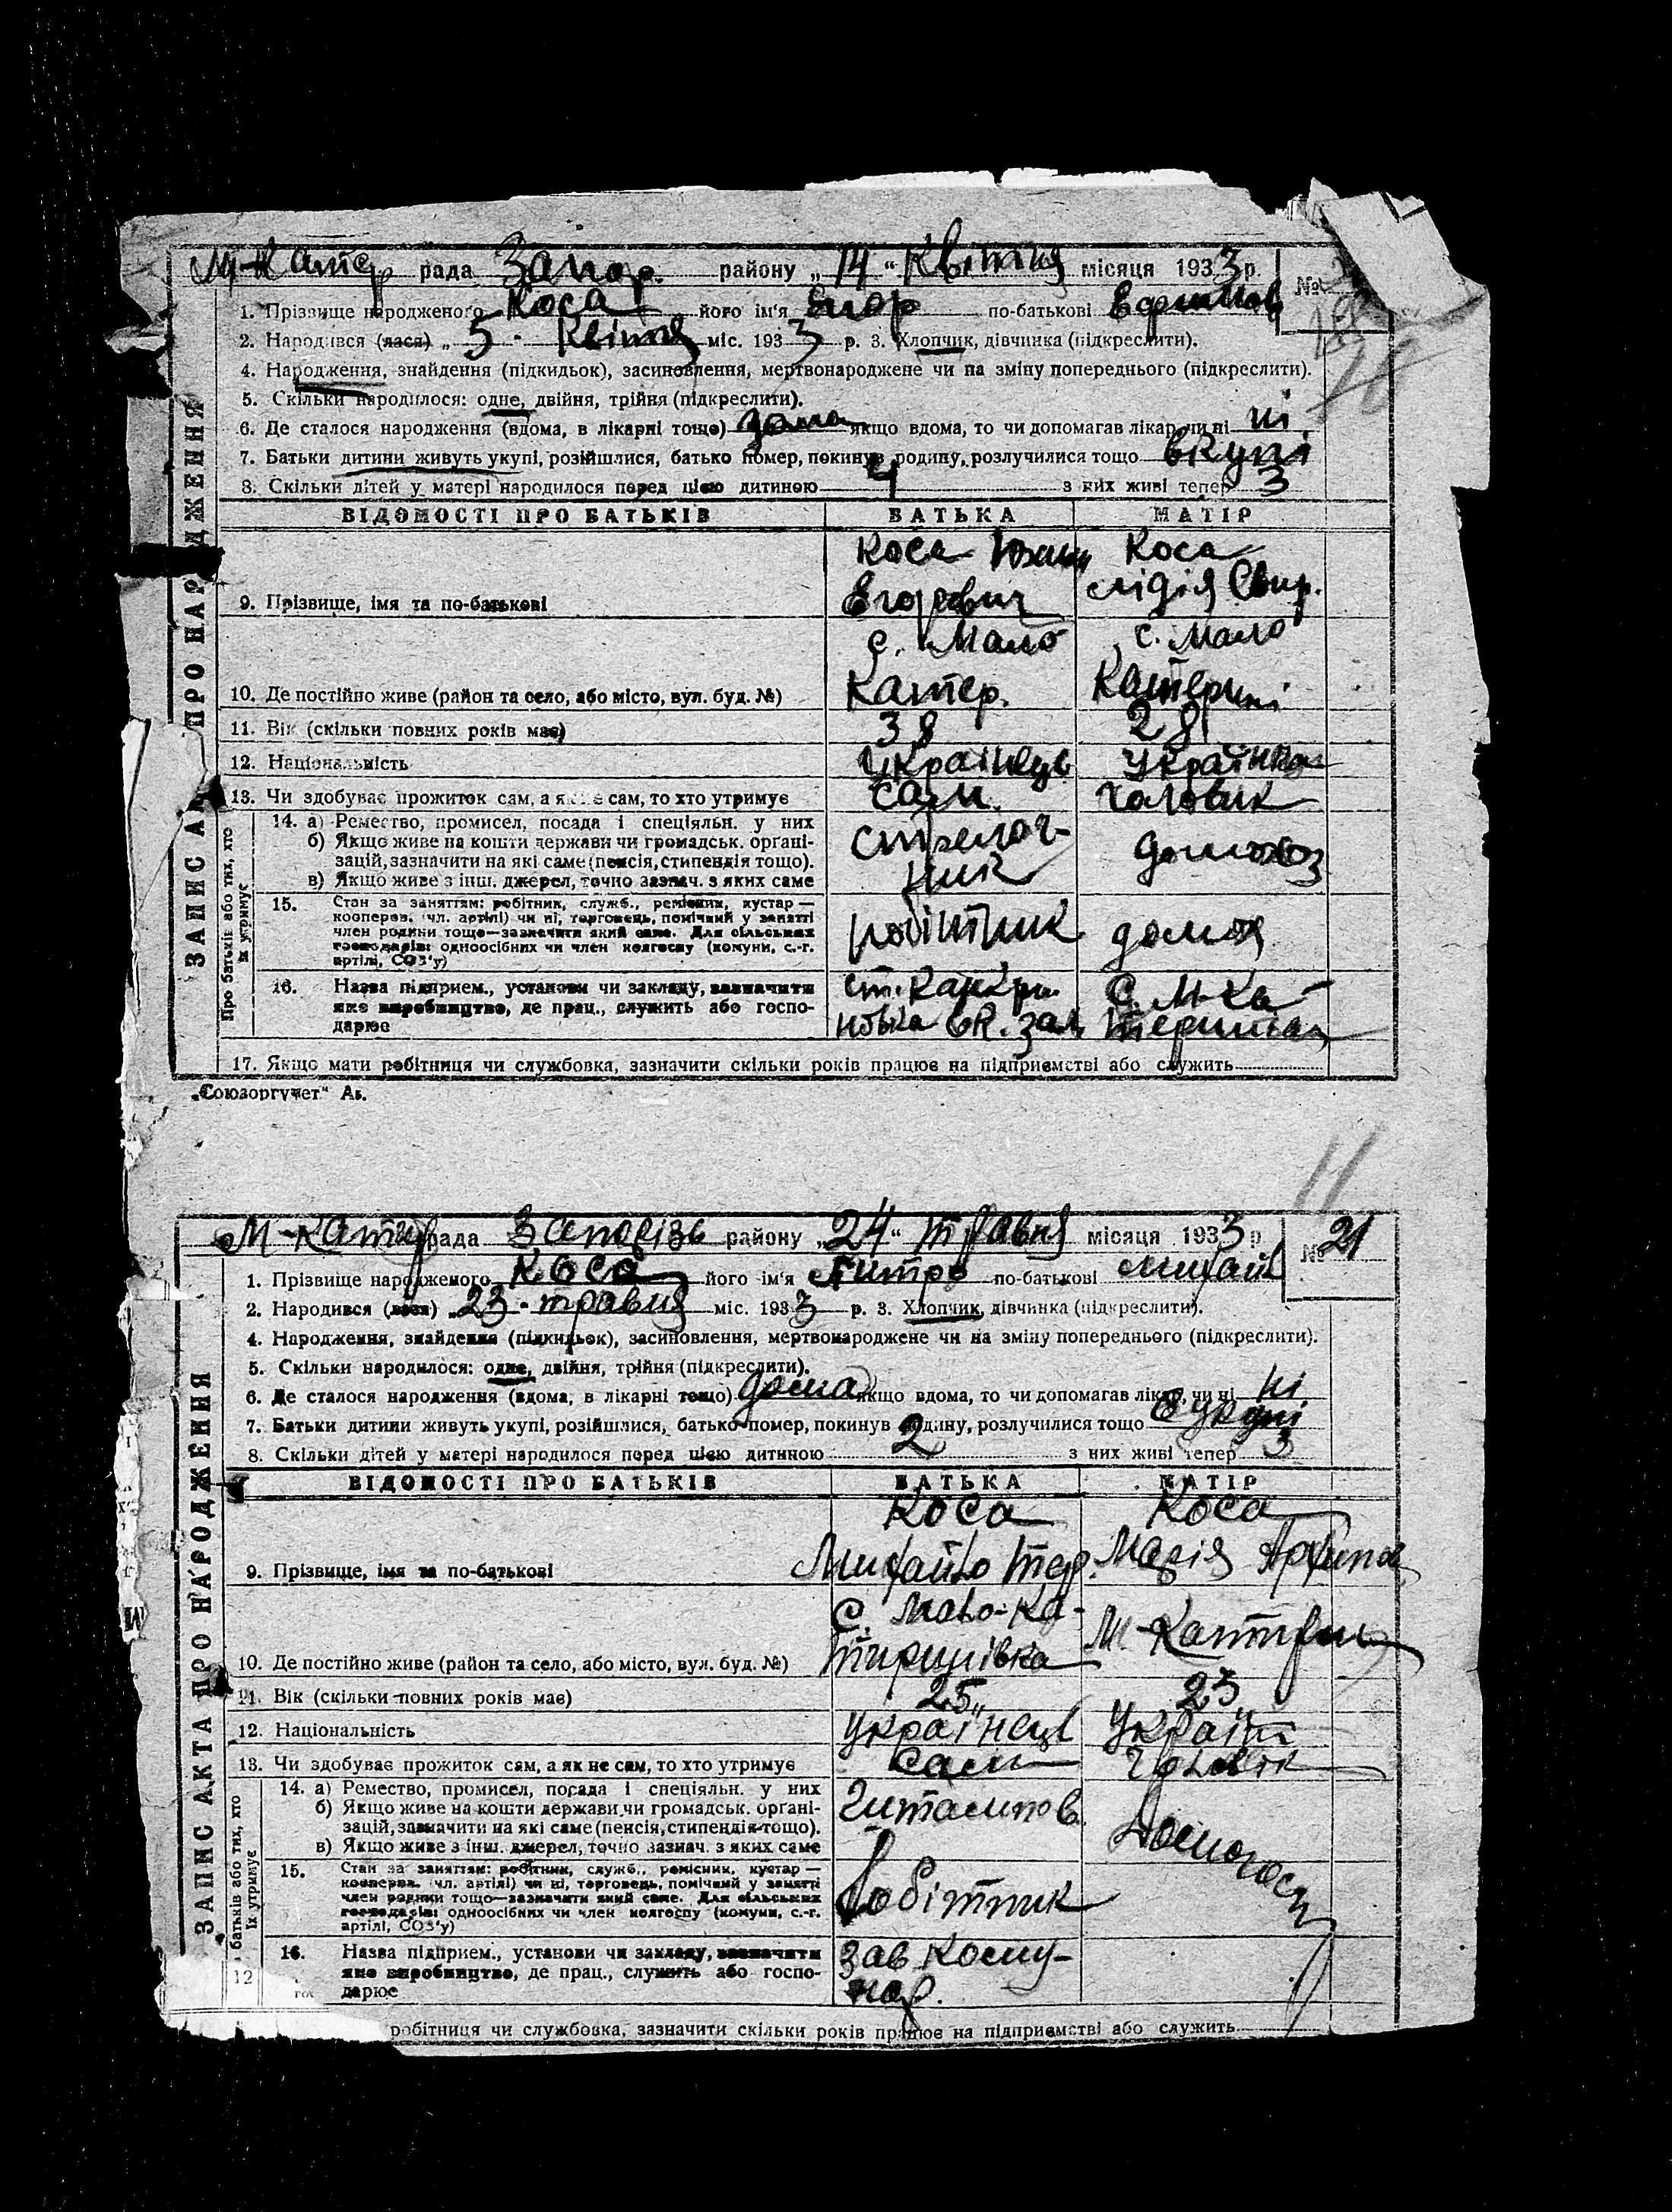 М-Катер рада Запор. району „14“ Квітня місяця 1933 р. №
1. Прізвище народженого Коса його ім'я Егор по-батькові Ефимов
2. Народився (лася) „5“ Квітня міс. 1933 р. 3. Хлопчик, дівчинка (підкреслити).
4. Народження, знайдення (підкидьок), засиновлення, мертвонароджене чи на зміну попереднього (підкреслити).
5. Скільки народилося: одне, двійня, трійня (підкреслити).
6. Де сталося народження (вдома, в лікарні тощо) дома якщо вдома, то чи допомагав лікар чи ні ні
7. Батьки дитини живуть укупі, розійшлися, батько помер, покинув родину, розлучилися тощо вкупі
8. Скільки дітей у матері народилося перед цією дитиною 4 з них живі тепер 3
ЗАПИС АКТА ПРО НАРОДЖЕННЯ
ВІДОМОСТІ ПРО БАТЬКІВ БАТЬКА МАТІР
Коса Коса
Егорович Лідія Свир.
9. Прізвище, імя та по-батькові
с. Мало с. Мало
10. Де постійно живе (район та село, або місто, вул. буд. №) Катер. Катерині
11. Вік (скільки повних років має) 38 28
12. Національність Українець Українка
13. Чи здобуває прожиток сам, а як не сам, то хто утримує сам. чоловик
Про батьків або тих, хто їх утримує
14. а) Ремество, промисел, посада і спеціяльн. у них
б) Якщо живе на кошти держави чи громадськ. органі-
зацій, зазначити на які саме (пенсія, стипендія тощо).
в) Якщо живе з інш. джерел, точно зазнач. з яких саме
стрелоч-
ник
домохоз
15. Стан за заняттям: робітник, служб., ремісник, кустар—
кооперов. (чл. артілі) чи ні, торговець, помічний у занятті
член родини тощо—зазначити який саме. Для сільських
господарів: одноосібних чи член колгоспу (комуни, с.-г.
артілі, СОЗ'у)
робітник
16. Назва підприєм., установи чи закладу, зазначити
яке виробництво, де прац., служить або госпо-
дарює
с. М-Ка-
17. Якщо мати робітниця чи службовка, зазначити скільки років працює на підприємстві або служить
„Союзоргучет“ Аб.
11
рада Запорізь району „24“ травня місяця 1933 р № 21
1. Прізвище народженого Коса його ім'я по-батькові Михайл
2. Народився (лася) „23“ травня міс. 1933 р. 3. Хлопчик, дівчинка (підкреслити).
4. Народження, знайдення (підкидьок), засиновлення, мертвонароджене чи на зміну попереднього (підкреслити).
5. Скільки народилося: одне, двійня, трійня (підкреслити).
6. Де сталося народження (вдома, в лікарні тощо) дома якщо вдома, то чи допомагав лікар чи ні ні
7. Батьки дитини живуть укупі, розійшлися, батько помер, покинув родину, розлучилися тощо вукупі
8. Скільки дітей у матері народилося перед цією дитиною 2 з них живі тепер 3
ЗАПИС АКТА ПРО НАРОДЖЕННЯ
ВІДОМОСТІ ПРО БАТЬКІВ БАТЬКА МАТІР
Коса Коса
9. Прізвище, імя та по-батькові Михайло Марія Архипов
С. Мало-Ка-
10. Де постійно живе (район та село, або місто, вул. буд. №) тиринівка
11. Вік (скільки повних років має) 25 23
12. Національність Українець
13. Чи здобуває прожиток сам, а як не сам, то хто утримує сам Чоловік
батьків або тих, хто їх утримує
14. а) Ремество, промисел, посада і спеціяльн. у них
б) Якщо живе на кошти держави чи громадськ. органі-
зацій, зазначити на які саме (пенсія, стипендія тощо).
в) Якщо живе з інш. джерел, точно зазнач. з яких саме
Домогосп
15. Стан за заняттям: робітник, служб., ремісник, кустар—
кооперв. (чл. артілі) чи ні, торговець, помічний у занятті
член родини тощо—зазначити який саме. Для сільських
господарів: одноосібних чи член колгоспу (комуни, с.-г.
артілі, СОЗ'у)
Робітник
16. Назва підприєм., установи чи закладу, зазначити
яке виробництво, де прац., служить або госпо-
дарює
Зав Кому-
нар.
12
робітниця чи службовка, зазначити скільки років працює на підприємстві або служить